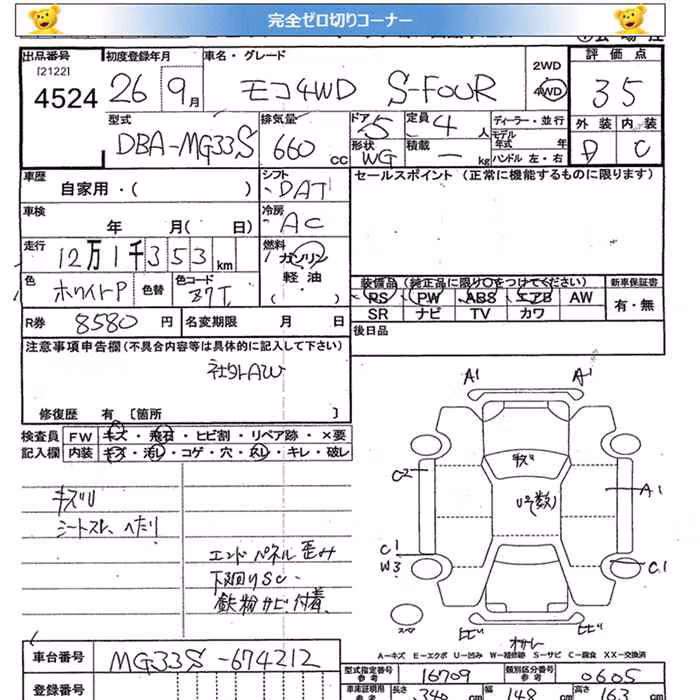 完全ゼロ切りコーナー
出品番号 初度登録年月 車名・グレード 2WD 評価点
[2122] 4524 26 9月 モコ4WD S-FOUR 4WD 35
型式 排気量 ドア 5 定員 4 人 ディーラー・並行 外装 内装
DBA-MG33S 660 cc 形状 WG 積載 ー kg モデル年式 年 D C
ハンドル 左・右
車歴 シフト セールスポイント (正常に機能するものに限ります)
自家用・( ) DAT
車検 冷房
年 月( 日) AC
走行 燃料
12万1千353km ガソリン
軽油
色 色替 色コード ( )
ホワイトP Z7T
装備品 (純正品に限り○をつけてください) 新車保証書
PS PW ABS エアB AW 有・無
SR ナビ TV カワ
R券 8580 円 名変期限 月 日 後日品
注意事項申告欄(不具合内容等は具体的に記入して下さい)
社外AW
修復歴 有 [箇所 ]
検査員 FW キズ・飛石・ヒビ割・リペア跡・×要
記入欄 内装 キズ・汚レ・コゲ・穴・凹レ・キレ・破レ
キズU
シートスレ、へたり
エンドパネル歪み
下廻りSC
鉄粉サビ付着
A1 A1
キズ
C2 U号(数) A1
C1
W3 C1
スペア
ヒビ ヒビ
A-キズ E-エクボ U-凹み W-補修跡 S-サビ C-腐食 XX-交換済
車台番号 MG33S-674212
型式指定番号 参考 16709 類別区分番号 参考 0605
登録番号
車庫証明用 参考 長さ 340 cm 幅 148 cm 高さ 163 cm